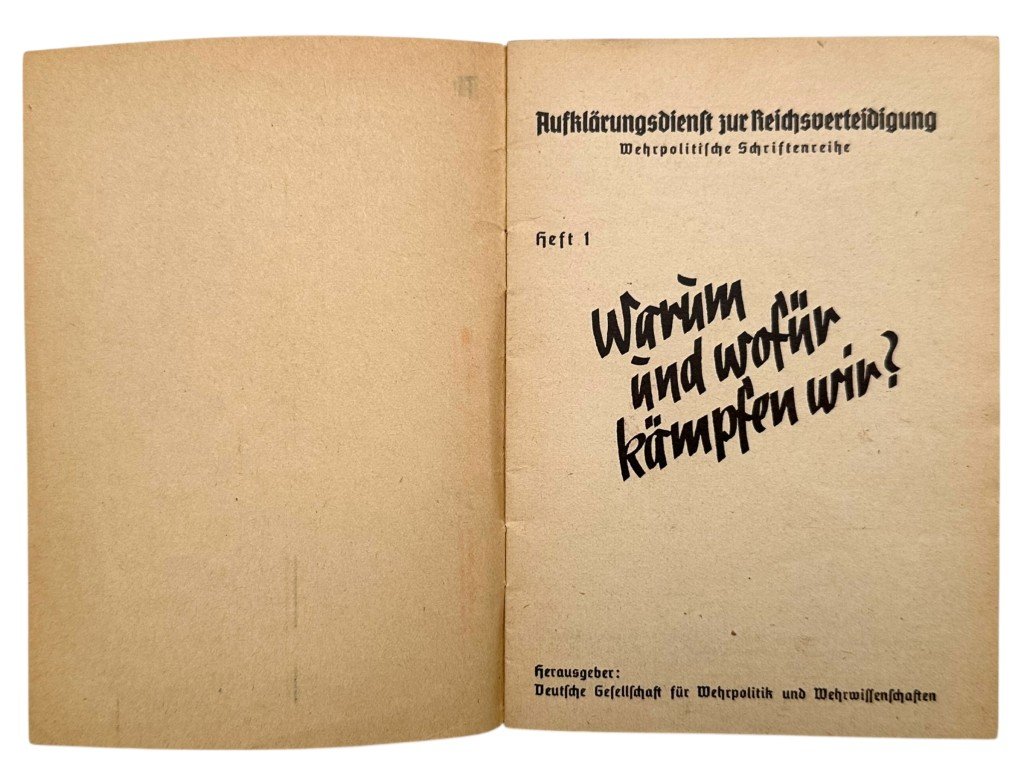 Aufklärungsdienst zur Reichsverteidigung
Wehrpolitische Schriftenreihe
Heft 1
Warum
und wofür
kämpfen wir?
Herausgeber:
Deutsche Gesellschaft für Wehrpolitik und Wehrwissenschaften